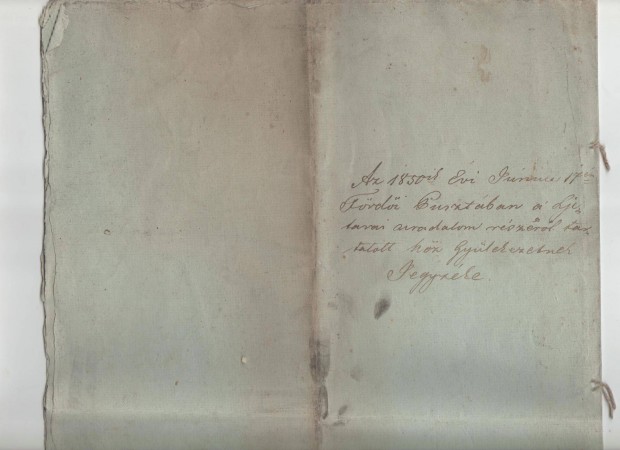 Az 1850ik Évi Junius 17én
Fördői Pusztában a
tavai uradalom részéről ta-
tatott köz Gyülekezetnek
Jegyzéke